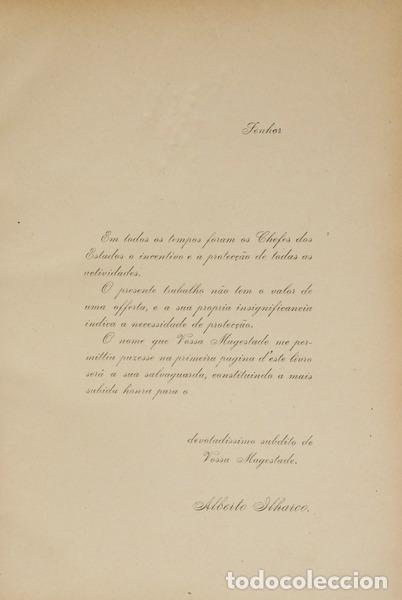 Senhor
Em todos os tempos foram os Chefes dos
Estados o incentivo e a protecção de todas as
actividades.
O presente trabalho não tem o valor de
uma offerta, e a sua propria insignificancia
indica a necessidade de protecção.
O nome que Vossa Magestade me per-
mittiu puzesse na primeira pagina d'este livro
será a sua salvaguarda, constituindo a mais
subida honra para o
devotadissimo subdito de
Vossa Magestade.
Alberto Ilharco.
todocoleccion